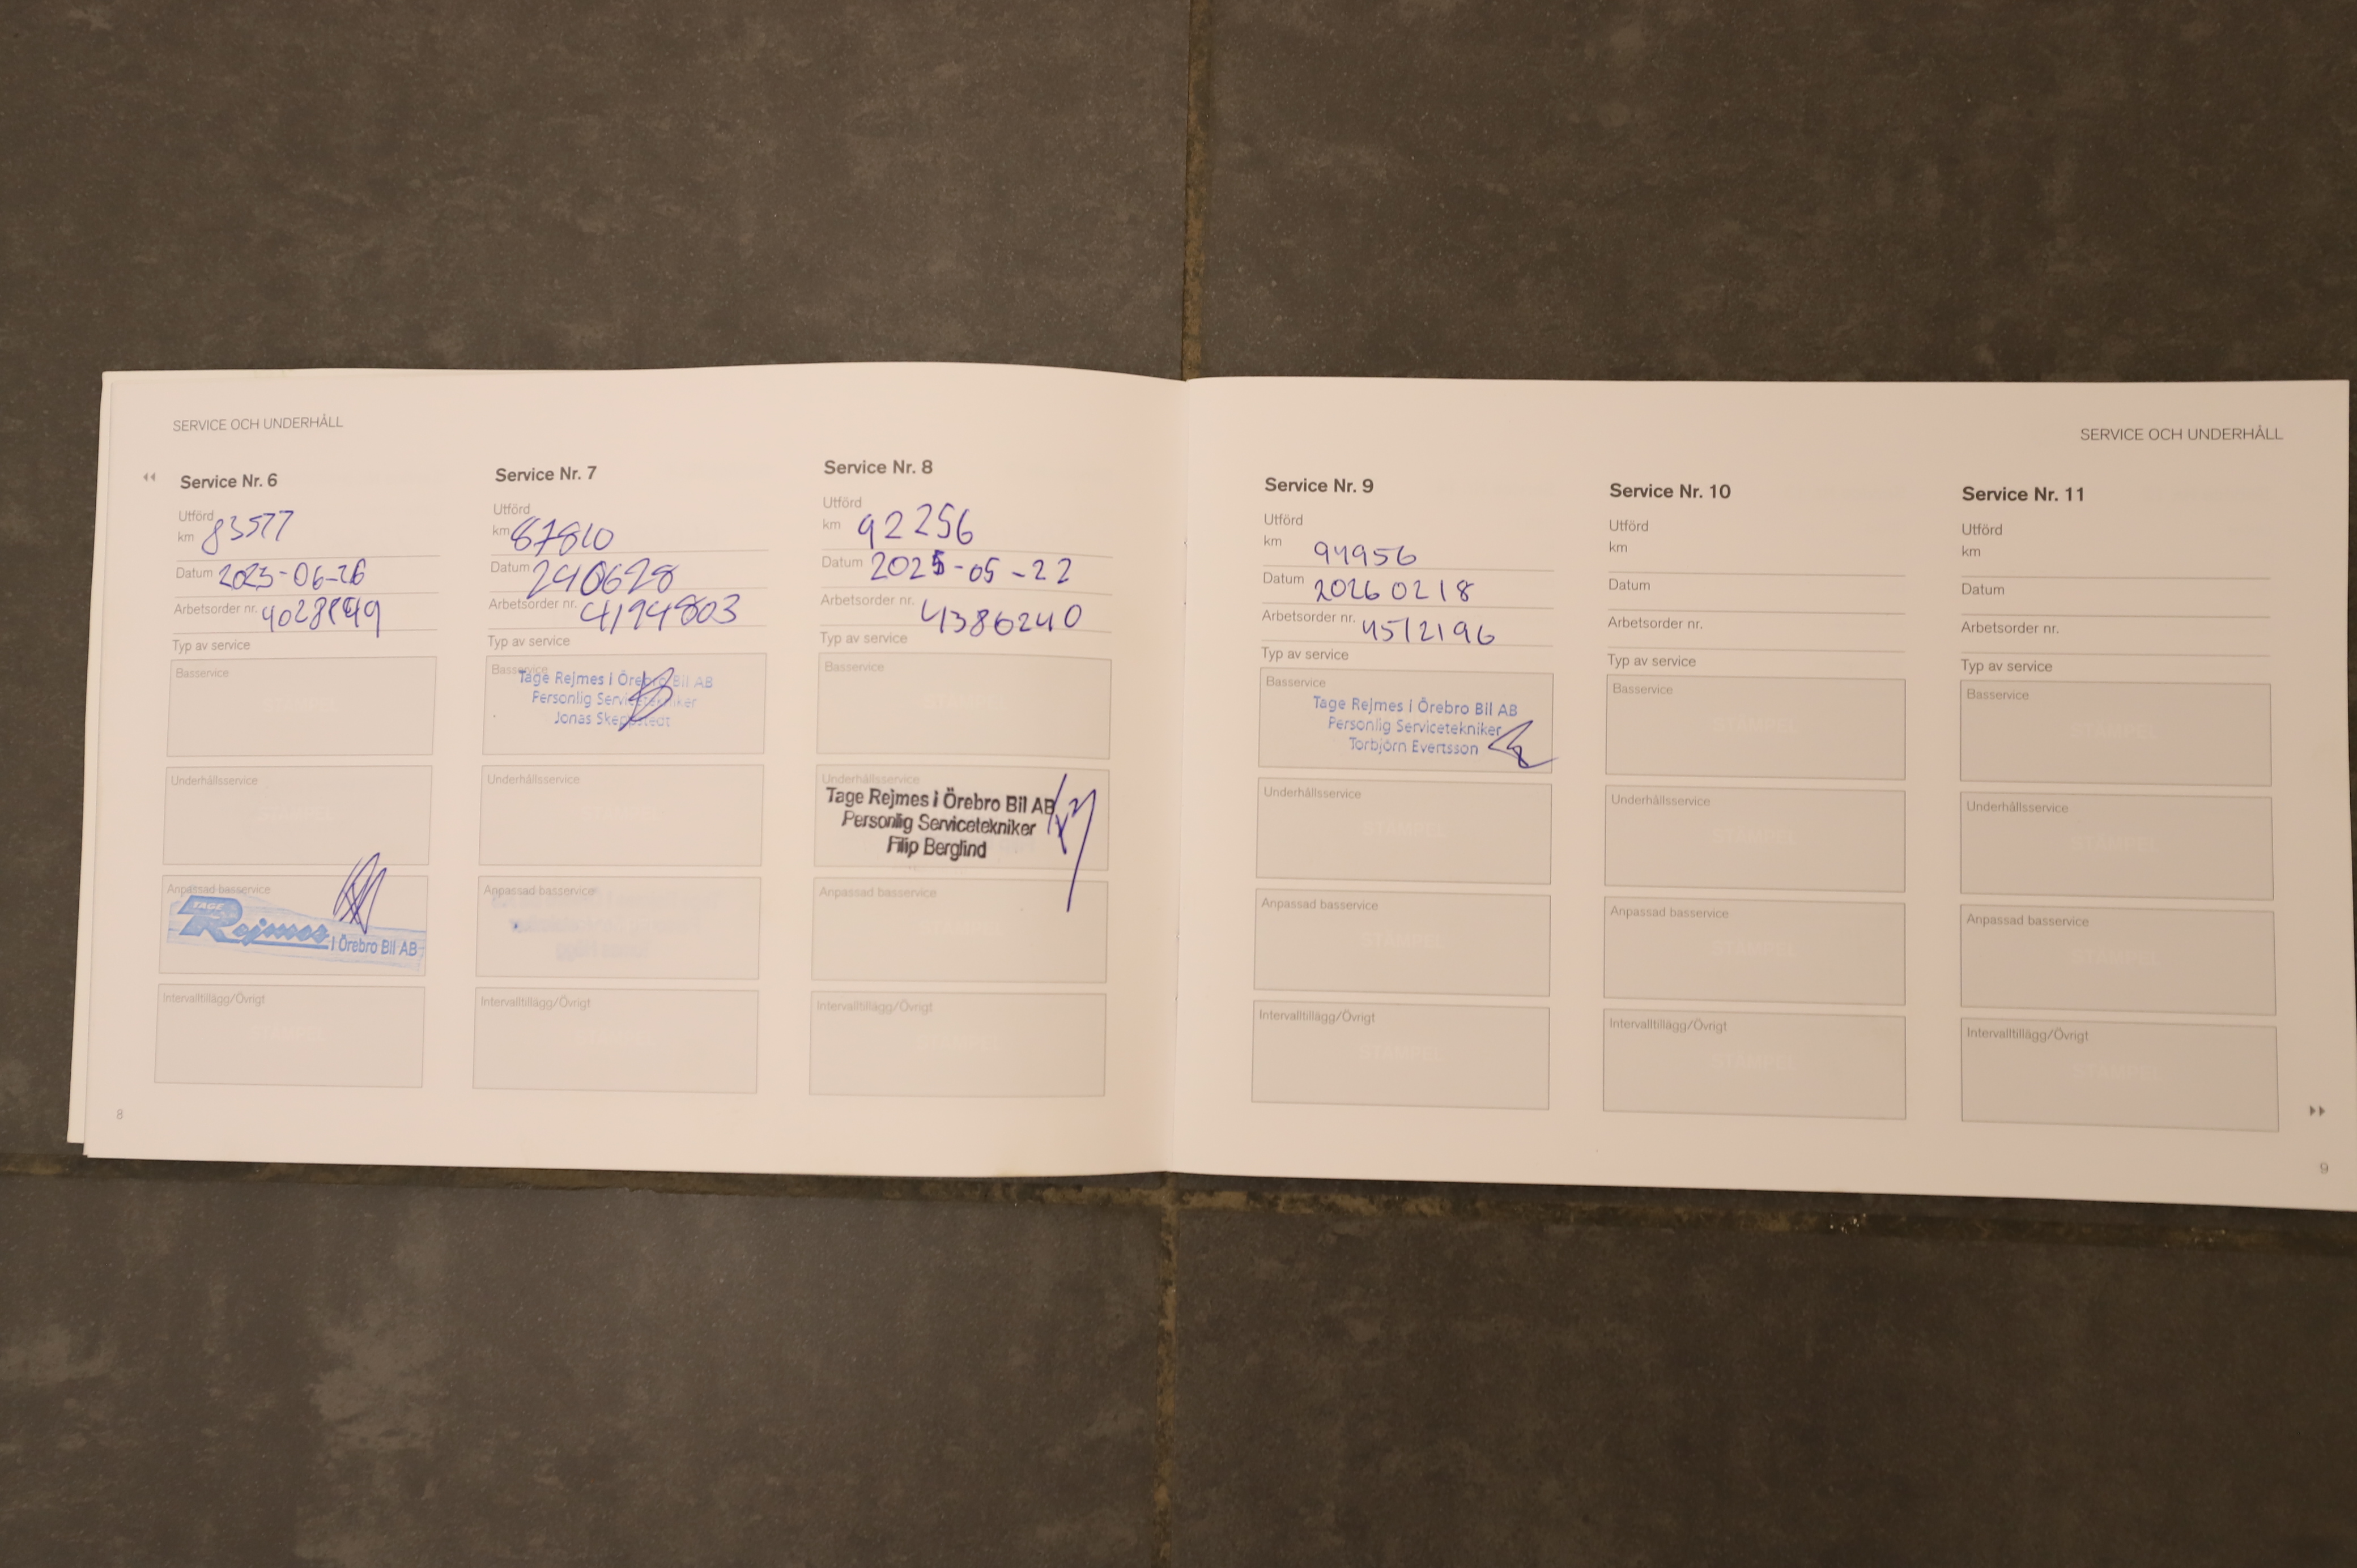 SERVICE OCH UNDERHÅLL
Service Nr. 6
Utförd
km 83577
Datum 2023-06-26
Arbetsorder nr.
Typ av service
Basservice
STÄMPEL
Underhållsservice
STÄMPEL
Anpassad basservice
TAGE
Rejmes i Örebro Bil AB
Intervalltillägg/Övrigt
STÄMPEL
8
Service Nr. 7
Utförd
km 87810
Datum 240628
Arbetsorder nr. 4194803
Typ av service
Basservice
Tage Rejmes i Örebro Bil AB
Personlig Servicetekniker
Jonas Skeppstedt
Underhållsservice
STÄMPEL
Anpassad basservice
Intervalltillägg/Övrigt
STÄMPEL
Service Nr. 8
Utförd
km 92256
Datum 2025-05-22
Arbetsorder nr. 4386240
Typ av service
Basservice
STÄMPEL
Underhållsservice
Tage Rejmes i Örebro Bil AB
Personlig Servicetekniker
Filip Berglind
Anpassad basservice
STÄMPEL
Intervalltillägg/Övrigt
STÄMPEL
SERVICE OCH UNDERHÅLL
Service Nr. 9
Utförd
km 94956
Datum 20260218
Arbetsorder nr. 4512196
Typ av service
Basservice
Tage Rejmes i Örebro Bil AB
Personlig Servicetekniker
Torbjörn Evertsson
Underhållsservice
STÄMPEL
Anpassad basservice
STÄMPEL
Intervalltillägg/Övrigt
STÄMPEL
Service Nr. 10
Utförd
km
Datum
Arbetsorder nr.
Typ av service
Basservice
STÄMPEL
Underhållsservice
STÄMPEL
Anpassad basservice
STÄMPEL
Intervalltillägg/Övrigt
STÄMPEL
Service Nr. 11
Utförd
km
Datum
Arbetsorder nr.
Typ av service
Basservice
STÄMPEL
Underhållsservice
STÄMPEL
Anpassad basservice
STÄMPEL
Intervalltillägg/Övrigt
STÄMPEL
9